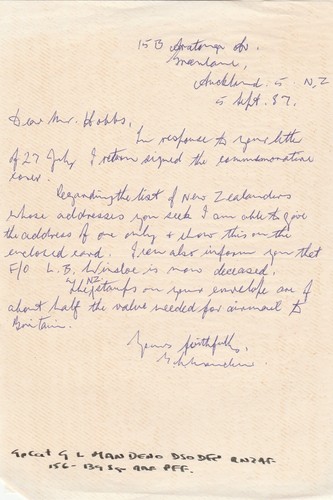 15B Aratonga Av.
Greenlane,
Auckland. 5 N.Z
5 Sept. 87.
Dear Mr. Hobbs,
In response to your letter
of 27 July, I return signed the commemorative
cover.
Regarding the list of New Zealanders
whose addresses you seek I am able to give
the address of one only & show this on the
enclosed card. I can also inform you that
F/O L.B. Winsloe is now deceased.
The NZ stamps on your envelope are of
about half the value needed for airmail to
Britain.
Yours faithfully,
G L Mandeno
GpCapt G L MANDENO DSO DFC RNZAF
156 - Sq RAF PFF.